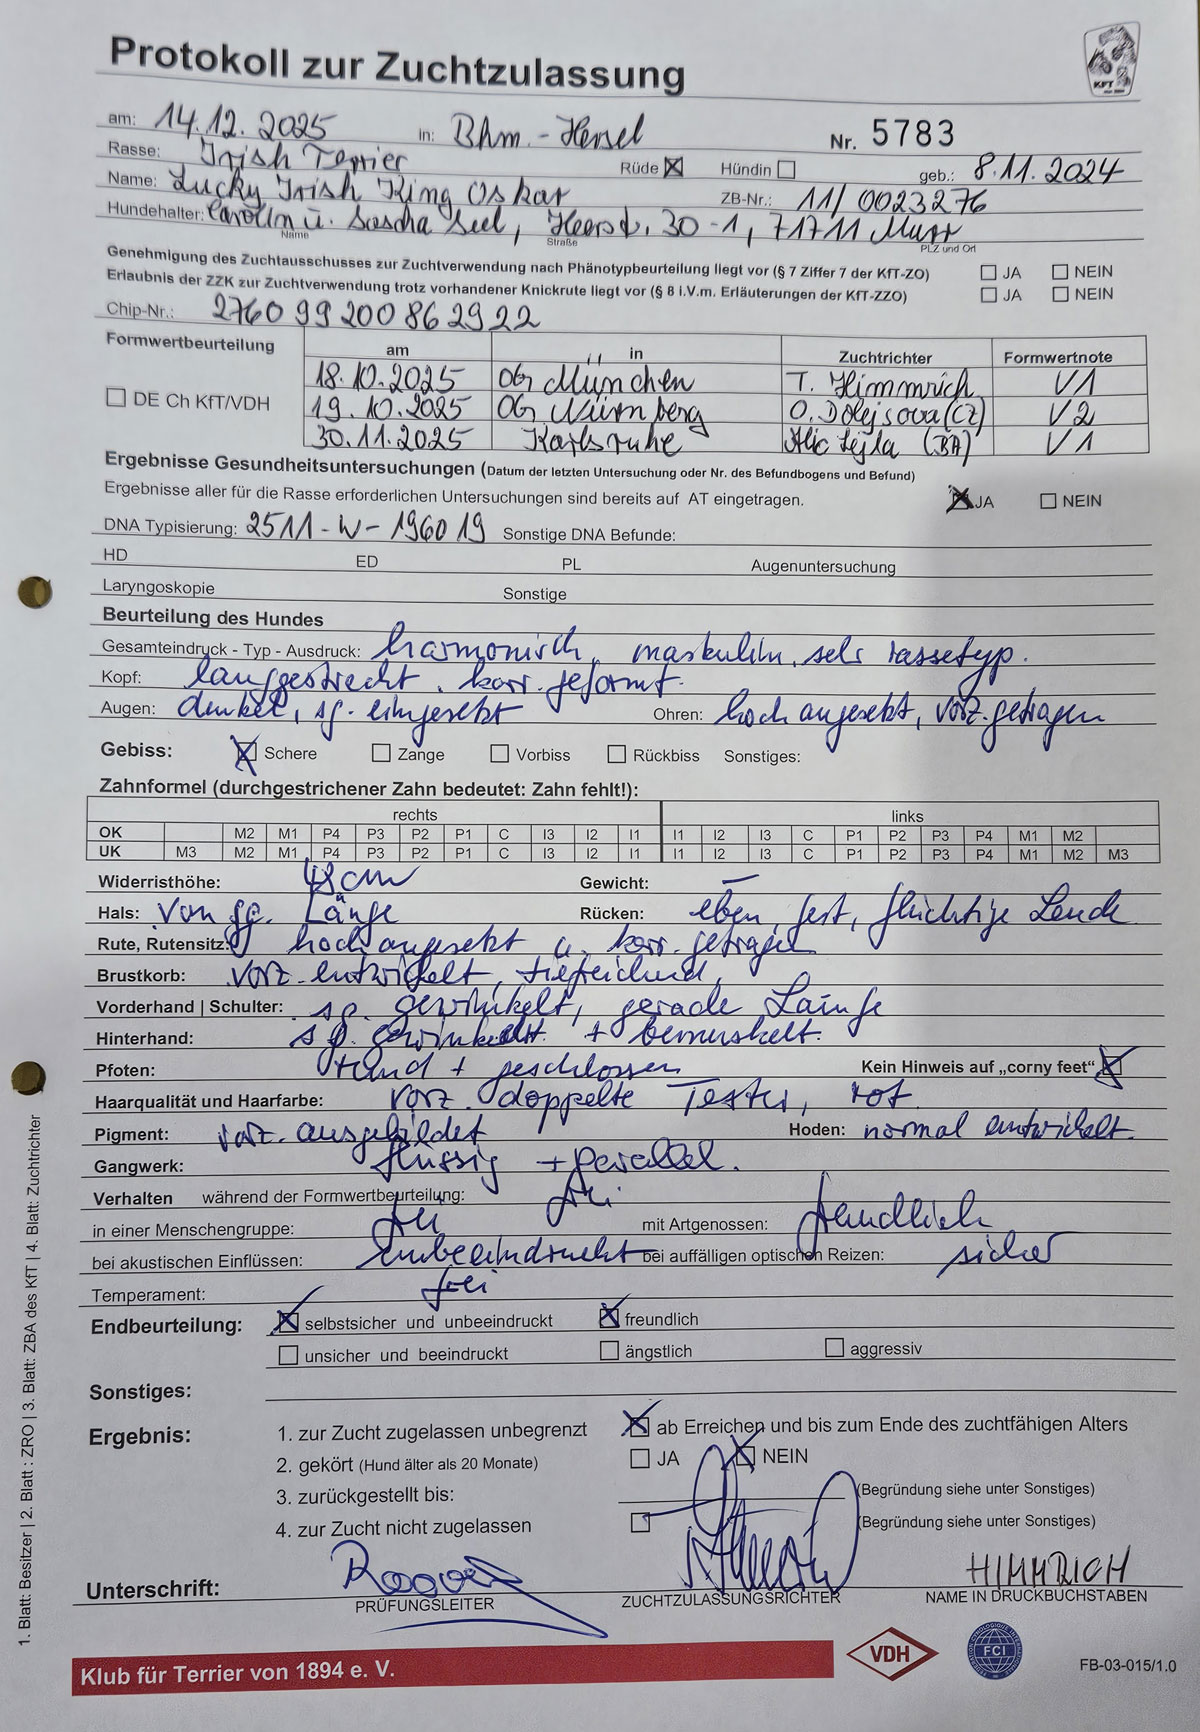 Protokoll zur Zuchtzulassung
KFT
am: 14.12.2025 in: Bhm.-Hersel Nr. 5783
Rasse: Irish Terrier Rüde ☒ Hündin ☐ geb.: 8.11.2024
Name: Lucky Irish King Oskar ZB-Nr.: 11/0023276
Hundehalter: Carolin u. Sascha Seel, 30-1, 71711 Murr
Name Straße PLZ und Ort
Genehmigung des Zuchtausschusses zur Zuchtverwendung nach Phänotypbeurteilung liegt vor (§ 7 Ziffer 7 der KfT-ZO) ☐ JA ☐ NEIN
Erlaubnis der ZZK zur Zuchtverwendung trotz vorhandener Knickrute liegt vor (§ 8 i.V.m. Erläuterungen der KfT-ZZO) ☐ JA ☐ NEIN
Chip-Nr.: 276099200862922
Formwertbeurteilung am in Zuchtrichter Formwertnote
18.10.2025 OG München T. Himmrich V1
☐ DE Ch KfT/VDH 19.10.2025 OG Nürnberg O. Dolejsova (CZ) V2
30.11.2025 Karlsruhe Alic Lejla (BA) V1
Ergebnisse Gesundheitsuntersuchungen (Datum der letzten Untersuchung oder Nr. des Befundbogens und Befund)
Ergebnisse aller für die Rasse erforderlichen Untersuchungen sind bereits auf AT eingetragen. ☒ JA ☐ NEIN
DNA Typisierung: 2511-W-196019 Sonstige DNA Befunde:
HD ED PL Augenuntersuchung
Laryngoskopie Sonstige
Beurteilung des Hundes
Gesamteindruck - Typ - Ausdruck: harmonisch, maskulin, sehr rassetyp.
Kopf: langgestreckt, korr. geformt.
Augen: dunkel, sg. eingesetzt Ohren: hoch angesetzt, vorz. getragen
Gebiss: ☒ Schere ☐ Zange ☐ Vorbiss ☐ Rückbiss Sonstiges:
Zahnformel (durchgestrichener Zahn bedeutet: Zahn fehlt!):
rechts links
OK M2 M1 P4 P3 P2 P1 C I3 I2 I1 I1 I2 I3 C P1 P2 P3 P4 M1 M2
UK M3 M2 M1 P4 P3 P2 P1 C I3 I2 I1 I1 I2 I3 C P1 P2 P3 P4 M1 M2 M3
Widerristhöhe: 48 cm Gewicht: –
Hals: Von sg. Länge Rücken: eben, fest, flüchtige Lende
Rute, Rutensitz: hoch angesetzt u. korr. getragen
Brustkorb: vorz. entwickelt, tiefreichend,
Vorderhand | Schulter: sg. gewinkelt, gerade Läufe
Hinterhand: sg. gewinkelt + bemuskelt.
Pfoten: rund + geschlossen Kein Hinweis auf „corny feet“ ☒
Haarqualität und Haarfarbe: vorz. doppelte Textur, rot
Pigment: vorz. ausgebildet Hoden: normal entwickelt.
Gangwerk: flüssig + parallel.
Verhalten während der Formwertbeurteilung: frei
in einer Menschengruppe: frei mit Artgenossen: freundlich
bei akustischen Einflüssen: unbeeindruckt bei auffälligen optischen Reizen: sicher
Temperament: frei
Endbeurteilung: ☒ selbstsicher und unbeeindruckt ☒ freundlich
☐ unsicher und beeindruckt ☐ ängstlich ☐ aggressiv
Sonstiges:
Ergebnis: 1. zur Zucht zugelassen unbegrenzt ☒ ab Erreichen und bis zum Ende des zuchtfähigen Alters
2. gekört (Hund älter als 20 Monate) ☐ JA ☒ NEIN
3. zurückgestellt bis: (Begründung siehe unter Sonstiges)
4. zur Zucht nicht zugelassen ☐ (Begründung siehe unter Sonstiges)
Unterschrift: HIMMRICH
PRÜFUNGSLEITER ZUCHTZULASSUNGSRICHTER NAME IN DRUCKBUCHSTABEN
Klub für Terrier von 1894 e. V.
VDH
FCI
FB-03-015/1.0
1. Blatt: Besitzer | 2. Blatt : ZRO | 3. Blatt: ZBA des KfT | 4. Blatt: Zuchtrichter